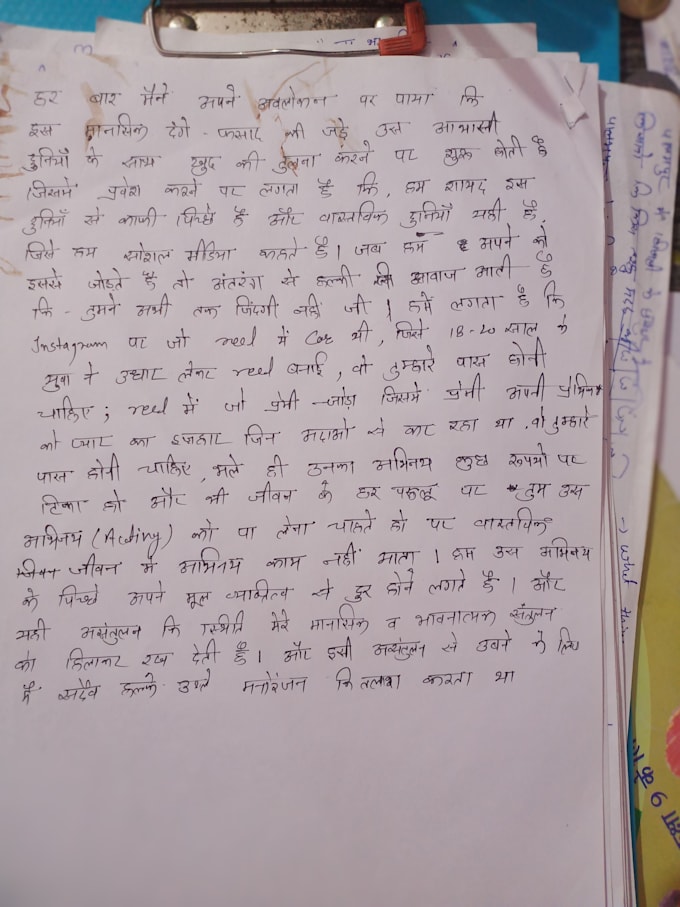 हर बार मैंने अपने अवलोकन पर पाया कि
इस मानसिक दंगे - फसाद की जड़े उस आभासी
दुनियाँ के साथ खुद की तुलना करने पर शुरू होती है
जिसमें प्रवेश करने पर लगता है कि, हम शायद इस
दुनियाँ से काफी पिछे है और वास्तविक दुनियाँ यही है,
जिसे हम सोशल मीडिया कहते है। जब हम अपने को
इससे जोड़ते है तो अंतरंग से हल्की सी आवाज आती है
कि - तुमने अभी तक जिंदगी नही जी। हमें लगता है कि
Instagram पर जो reel में Car थी, जिसे 18-20 साल के
युवा ने उधार लेकर reel बनाई, वो तुम्हारे पास होनी
चाहिए; reel में जो प्रेमी - जोड़ा जिसमें प्रेमी अपनी प्रेमिका
को प्यार का इजहार जिन अदाओ से कर रहा था, वो तुम्हारे
पास होनी चाहिए, भले ही उनका अभिनय कुछ रूपयो पर
टिका हो और भी जीवन के हर पहलू पर तुम उस
अभिनय (Acting) को पा लेना चाहते हो पर वास्तविक
जीवन में अभिनय काम नहीं आता। हम उस अभिनय
के पिच्छे अपने मूल व्यक्तित्व से दुर होने लगते है। और
यही असंतुलन कि स्थिति मेरे मानसिक व भावनात्मक संतुलन
को हिलाकर रख देती है। और इसी असंतुलन से उबने के लिए
मैं सदैव हल्के उथले मनोरंजन कि तलाश करता था